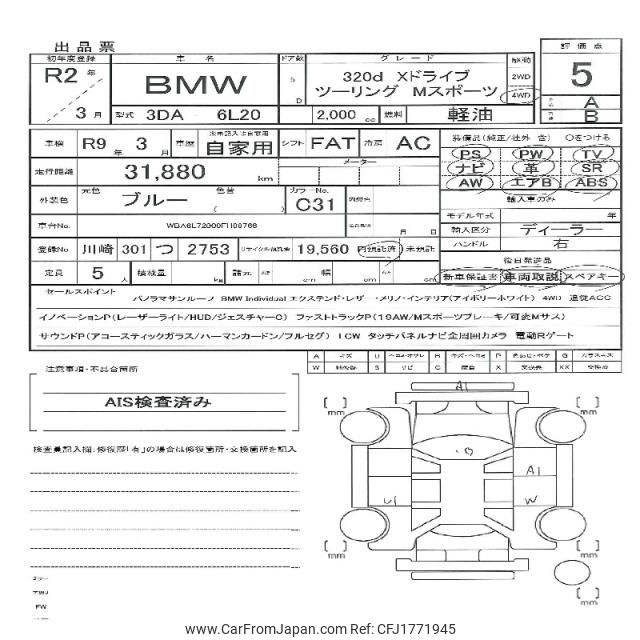 出品票
初年度登録 車名 ドア数 グレード 駆動 評価点
R2 年 3 月 BMW 5 D 320d Xドライブ ツーリング Mスポーツ 2WD 4WD 5
型式 3DA 6L20 2,000 cc 燃料 軽油 A B
車検 R9 年 3 月 車歴 自家用 シフト FAT 冷房 AC 装備品(純正/社外 含) ○をつける
走行距離 31,880 km メーター PS PW TV
ナビ 革 SR
AW エアB ABS
外装色 元色 ブルー 色替 ( ) カラーNo. C31 輸入車のみ
モデル年式 年
車台No. 月 日 輸入区分 ディーラー
登録No 川崎 301 つ 2753 リサイクル預託金 19,560 円預託済 未預託 ハンドル 右
後日発送品
定員 5 人 積載量 kg 諸元 cm 幅 cm cm 新車保証書 車両取説 スペアキー
セールスポイント
パノラマサンルーフ BMW Individual エクステンド・レザー・メリノ・インテリア(アイボリーホワイト) 4WD 追従ACC
イノベーションP(レーザーライト/HUD/ジェスチャーC) ファストトラックP(19AW/Mスポーツブレーキ/可変Mサス)
サウンドP(アコースティックガラス/ハーマンカードン/フルセグ) ICW タッチパネルナビ全周囲カメラ 電動Rゲート
注意事項・不具合箇所
AIS検査済み
検査員記入欄:修復歴「有」の場合は修復箇所・交換箇所を記入
A U P G
W S C X XX
A1
[ ] mm
[ ] mm
A1
U1
W
[ ] mm
[ ] mm
[ ] mm
PW
www.CarFromJapan.com Ref: CFJ1771945